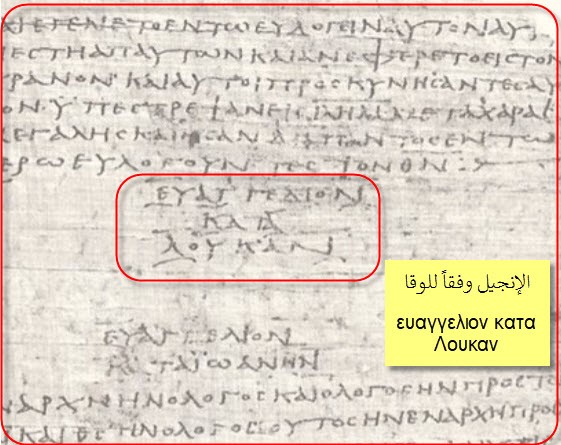 ΑΙΕΓΕΝΕΤΟΕΝΤωΕΥΛΟΓΕΙΝΑΥΤΟΝΑΥ
ΙΕϹΤΗΑΠΑΥΤωΝΚΑΙΑΝΕΦΕΡΕΤΟΕΙϹΤΟΝ
ΡΑΝΟΝ ΚΑΙΑΥΤΟΙΠΡΟϹΚΥΝΗϹΑΝΤΕϹΑΥ
ΟΝ ΥΠΕϹΤΡΕΨΑΝΕΙϹ ΜΕΤΑΧΑΡΑϹ
ΕΓΑΛΗϹΚΑΙΗϹΑΝ ΔΙΑΠΑΝΤΟϹΕΝΤω
ΕΡωΕΥΛΟΓΟΥΝΤΕϹΤΟΝΘΝ
ΕΥΑΓΓΕΛΙΟΝ
ΚΑΤΑ
ΛΟΥΚΑΝ
الإنجيل وفقاً للوقا
ευαγγελιον κατα
Λουκαν
ΕΥΑΓΓΕΛΙΟΝ
ΚΑΤΑΙωΑΝΗΝ
ΝΑΡΧΗΗΝΟΛΟΓΟϹΚΑΙΟΛΟΓΟϹΗΝΠΡΟϹΤΟ
ΚΑΙΘϹΗΝΟΛΟΓΟϹΟΥΤΟϹΗΝΕΝΑΡΧΗΠΡΟϹ